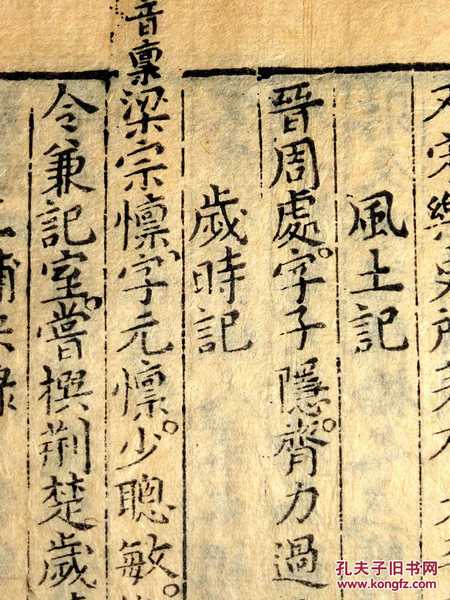 風土記
晉周處。字子隱。膂力過
歲時記
音禀
梁宗懔、字元懔。少聰敏。
令兼記室。嘗撰荆楚歲
孔夫子旧书网
www.kongfz.com